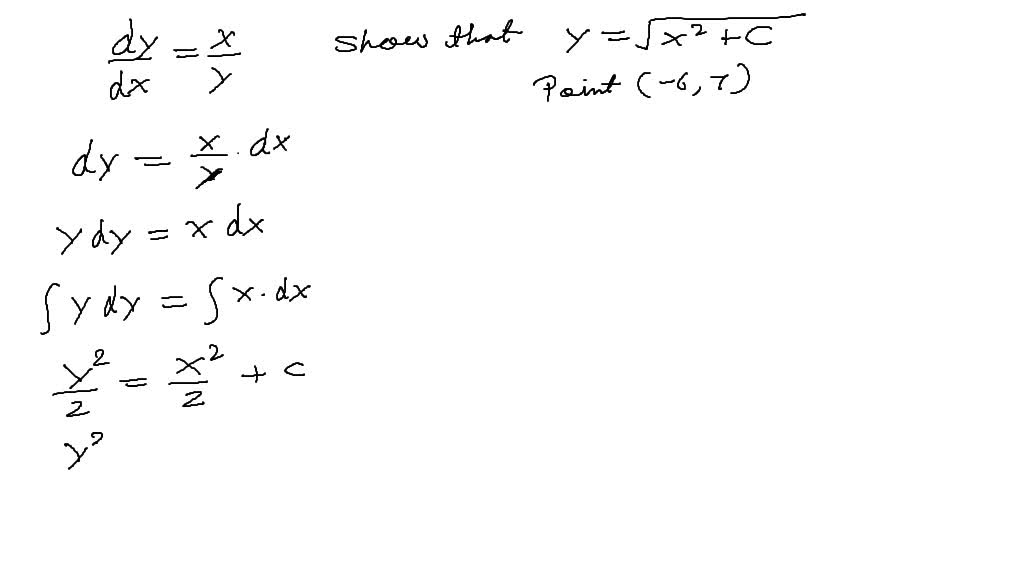 dy/dx = x/y show that y = √(x² + C)
Point (-6, 7)
dy = x/y · dx
y dy = x dx
∫ y dy = ∫ x · dx
y²/2 = x²/2 + c
y²